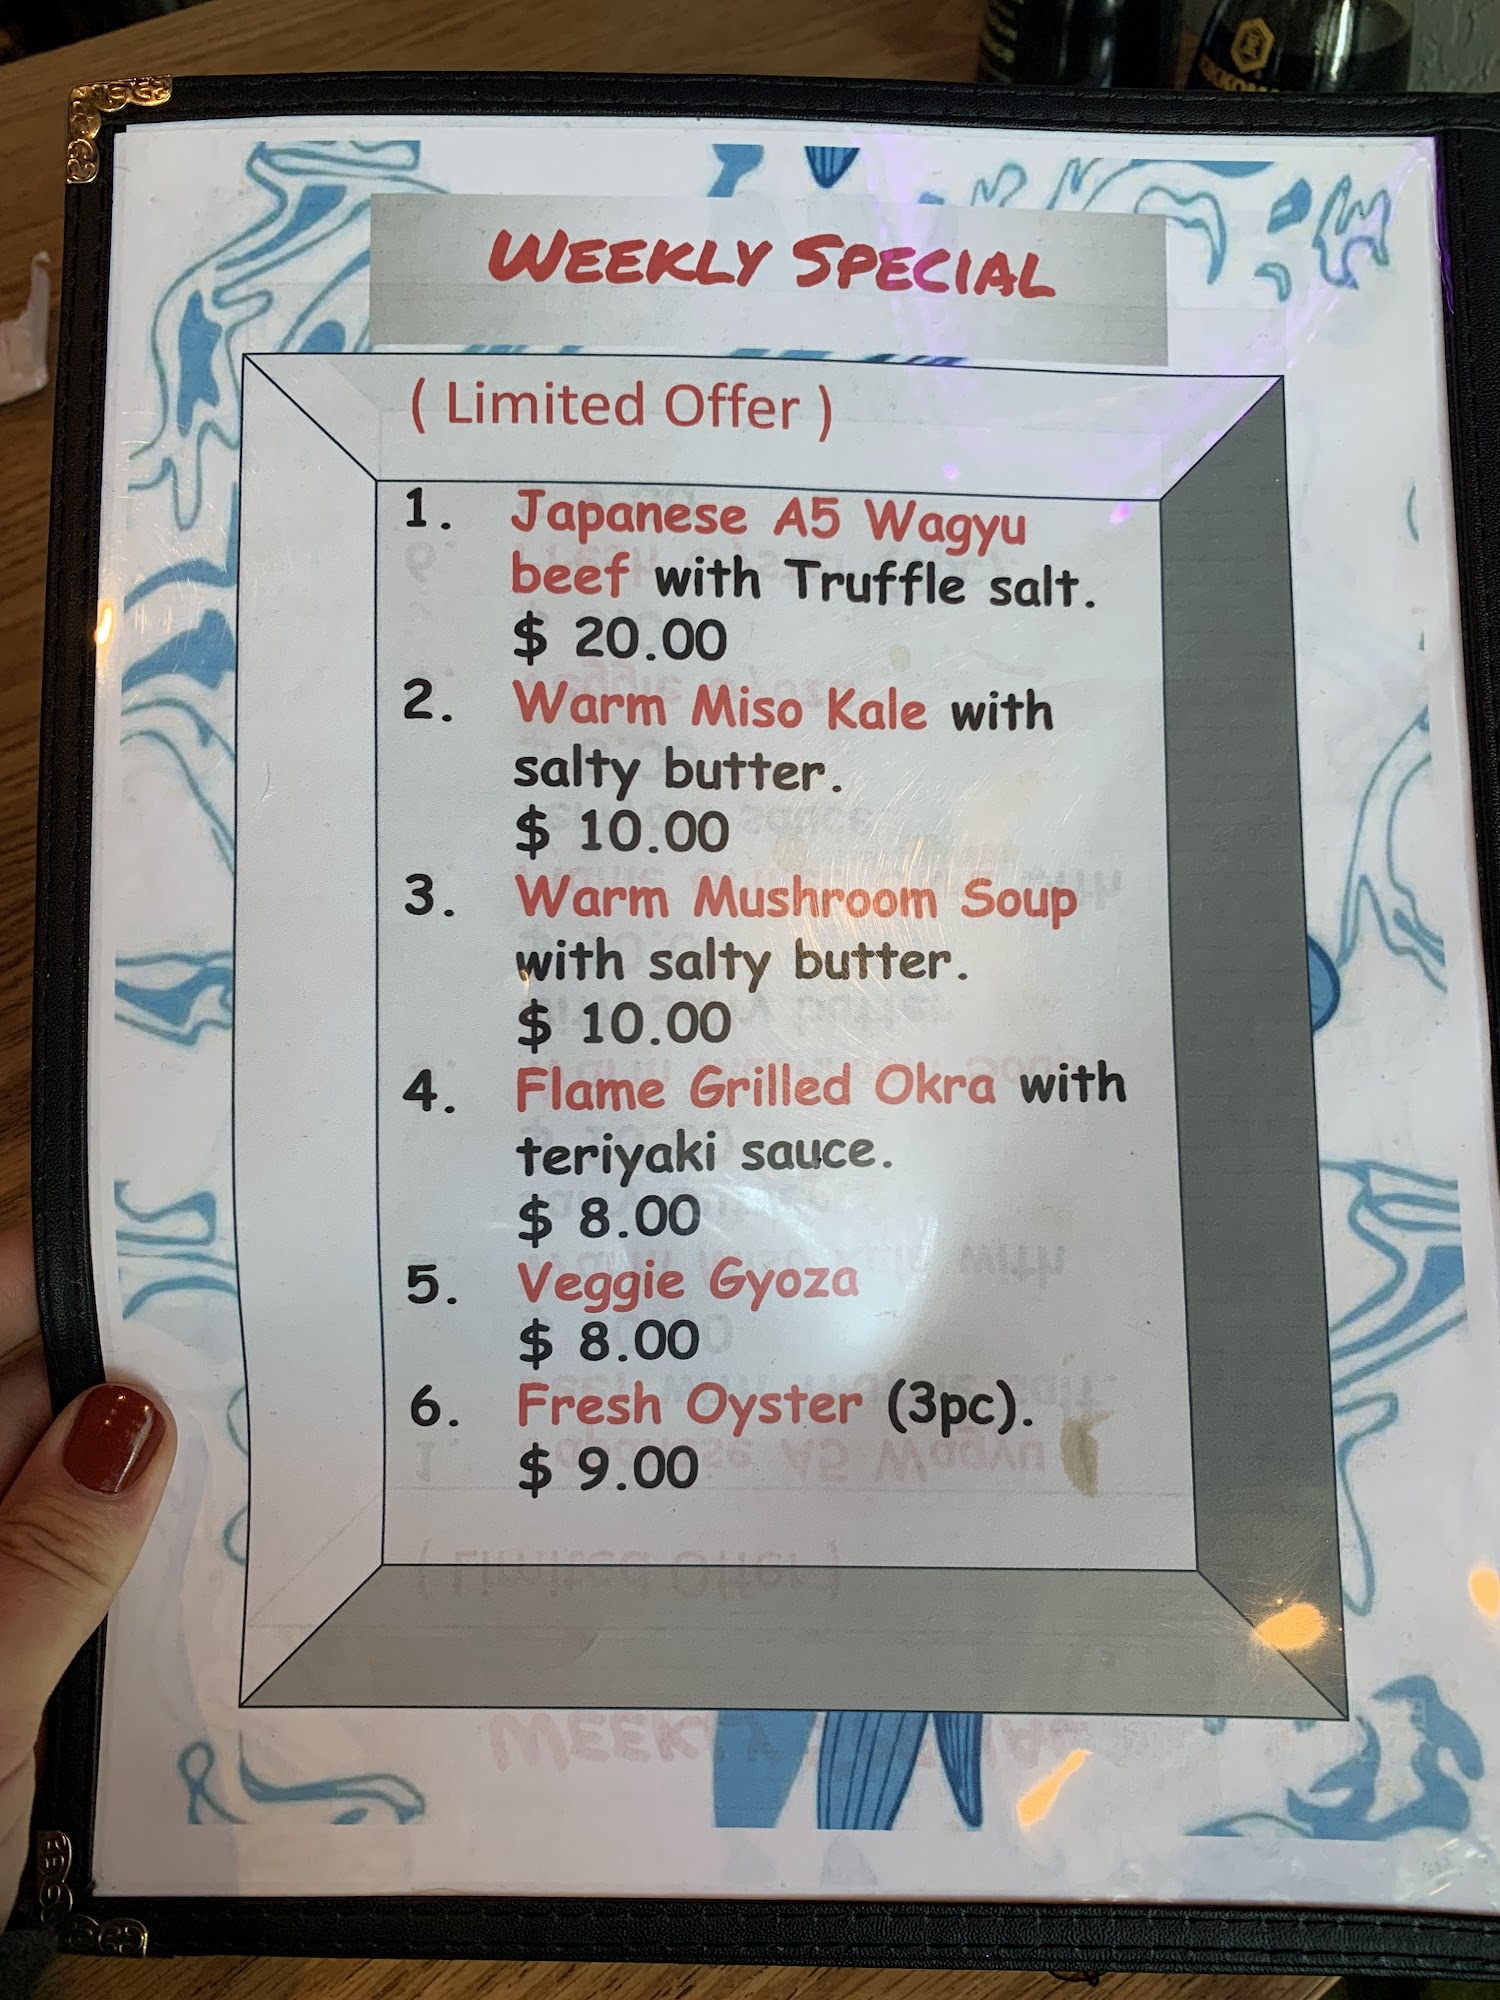 KIKKOMAN
WEEKLY SPECIAL
( Limited Offer )
1. Japanese A5 Wagyu
beef with Truffle salt.
$ 20.00
2. Warm Miso Kale with
salty butter.
$ 10.00
3. Warm Mushroom Soup
with salty butter.
$ 10.00
4. Flame Grilled Okra with
teriyaki sauce.
$ 8.00
5. Veggie Gyoza
$ 8.00
6. Fresh Oyster (3pc).
$ 9.00